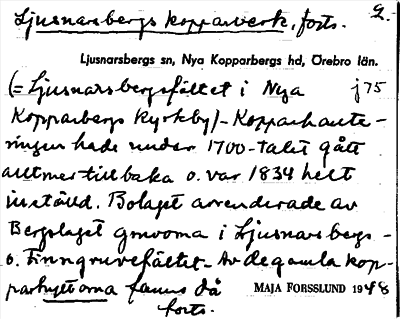 Ljusnarsbergs kopparverk, forts. 2.
Ljusnarsbergs sn, Nya Kopparbergs hd, Örebro län.
(= Ljusnarsbergsfältet i Nya j75
Kopparbergs Kyrkby) – Kopparhante-
ringen hade under 1700-talet gått
alltmer tillbaka o. var 1834 helt
inställd. Bolaget arrenderade av
Bergslaget gruvorna i Ljusnarsbergs-
o. Finngruvefältet – Av de gamla kop-
parhyttorna fanns då
forts.
MAJA FORSSLUND 1948